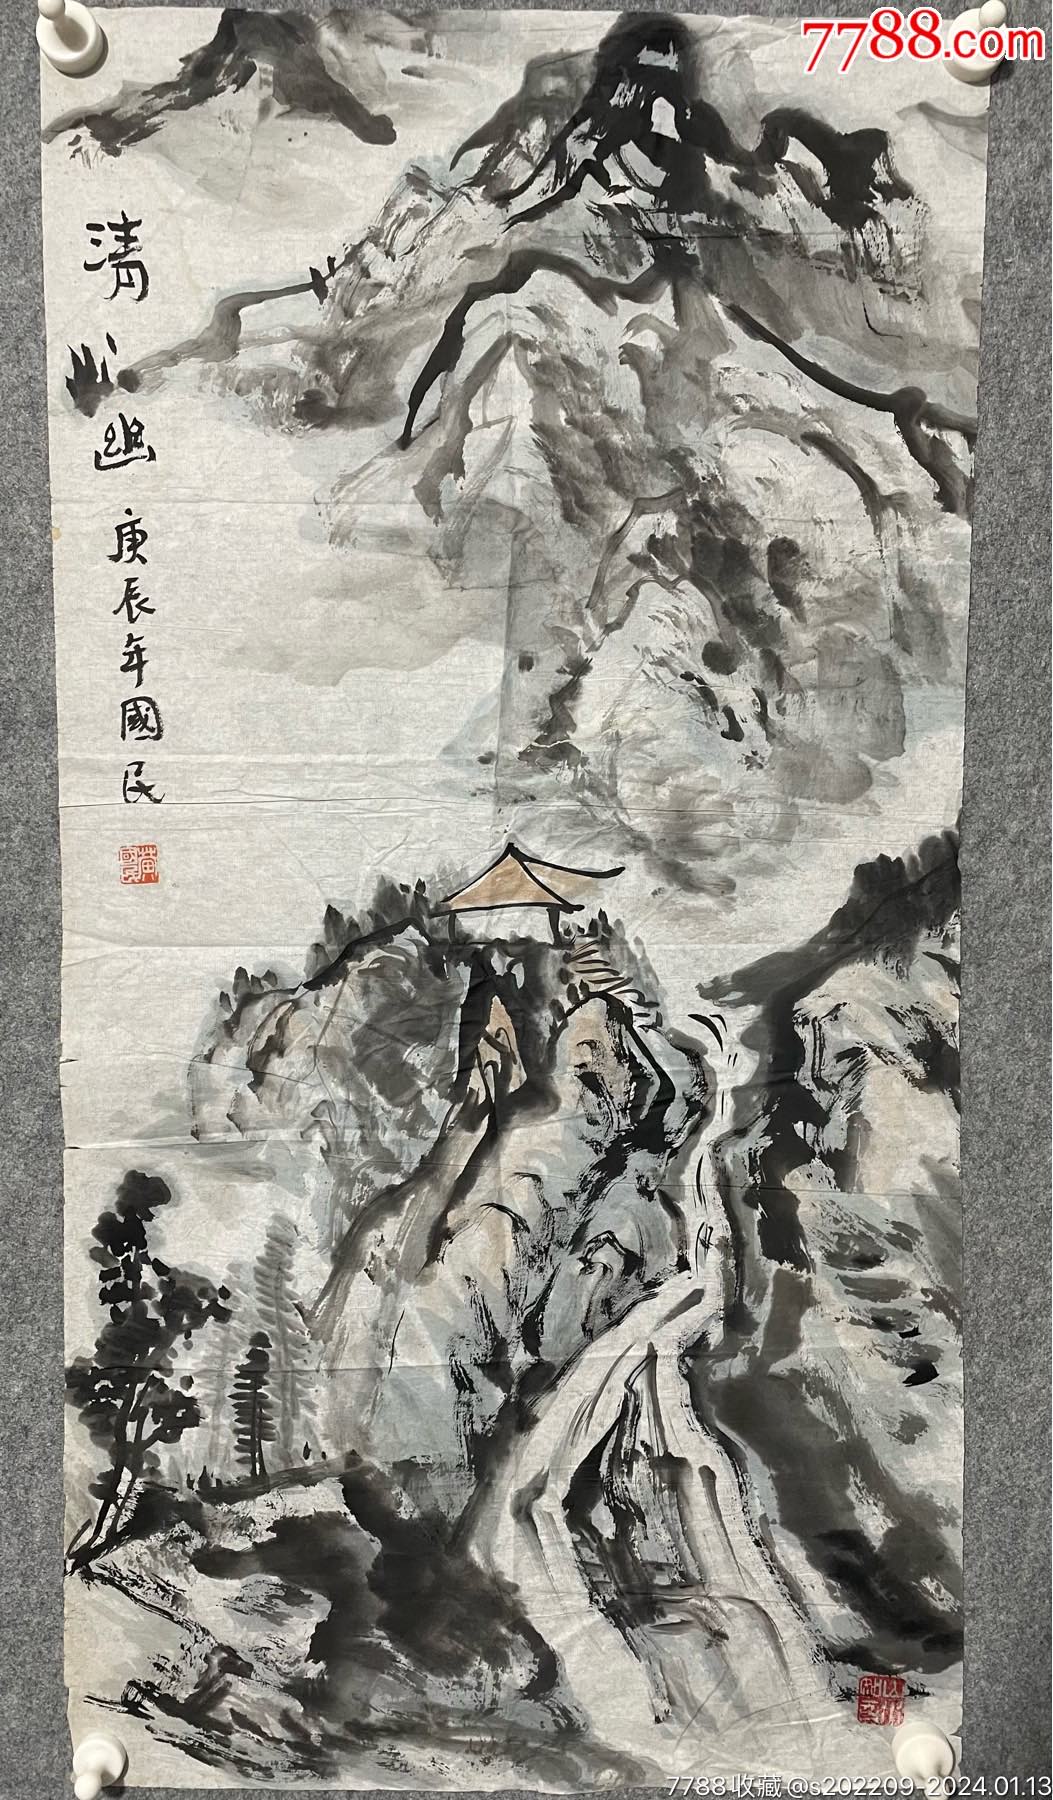 7788.com
清山幽
庚辰年國民
黄國民
7788收藏@s202209-2024.01.13